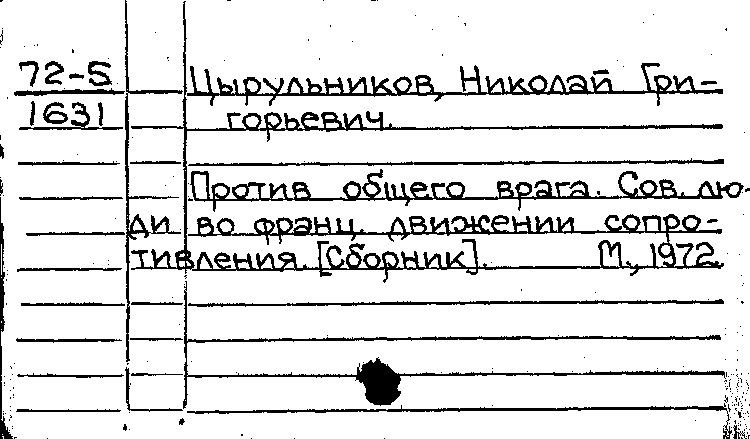 72-5 Цырульников, Николай Гри-
1631 горьевич.
Против общего врага. Сов. лю-
ди во франц. движении сопро-
тивления. [Сборник]. М., 1972.